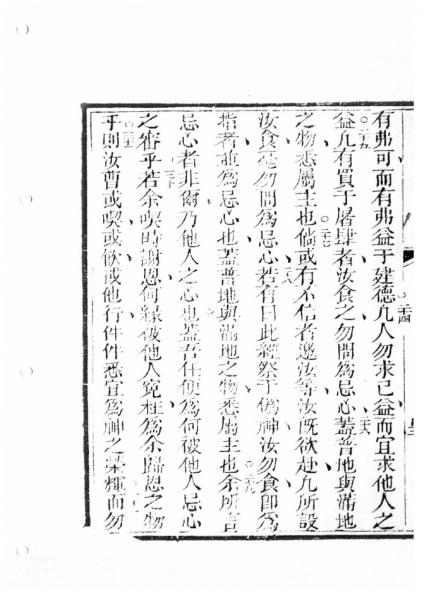 有弗可而有弗益于建德凡人勿求己益而宜求他人之
益凡有買于屠肆者汝食之勿問為忌心蓋普地與滿地
之物悉屬主也倘或有不信者邀汝等汝既欲赴凡所設
汝食處勿問為忌心若有曰此經祭于偽神汝勿食即為
指者並為忌心也蓋普地與滿地之物悉屬主也余所言
忌心者非爾乃他人之心也蓋吾任便為何被他人忌心
之審乎若余喫時謝恩何緣被他人冤枉為余歸恩之物
乎則汝曹或喫或飲或他行件件悉宜為神之榮輝而勿